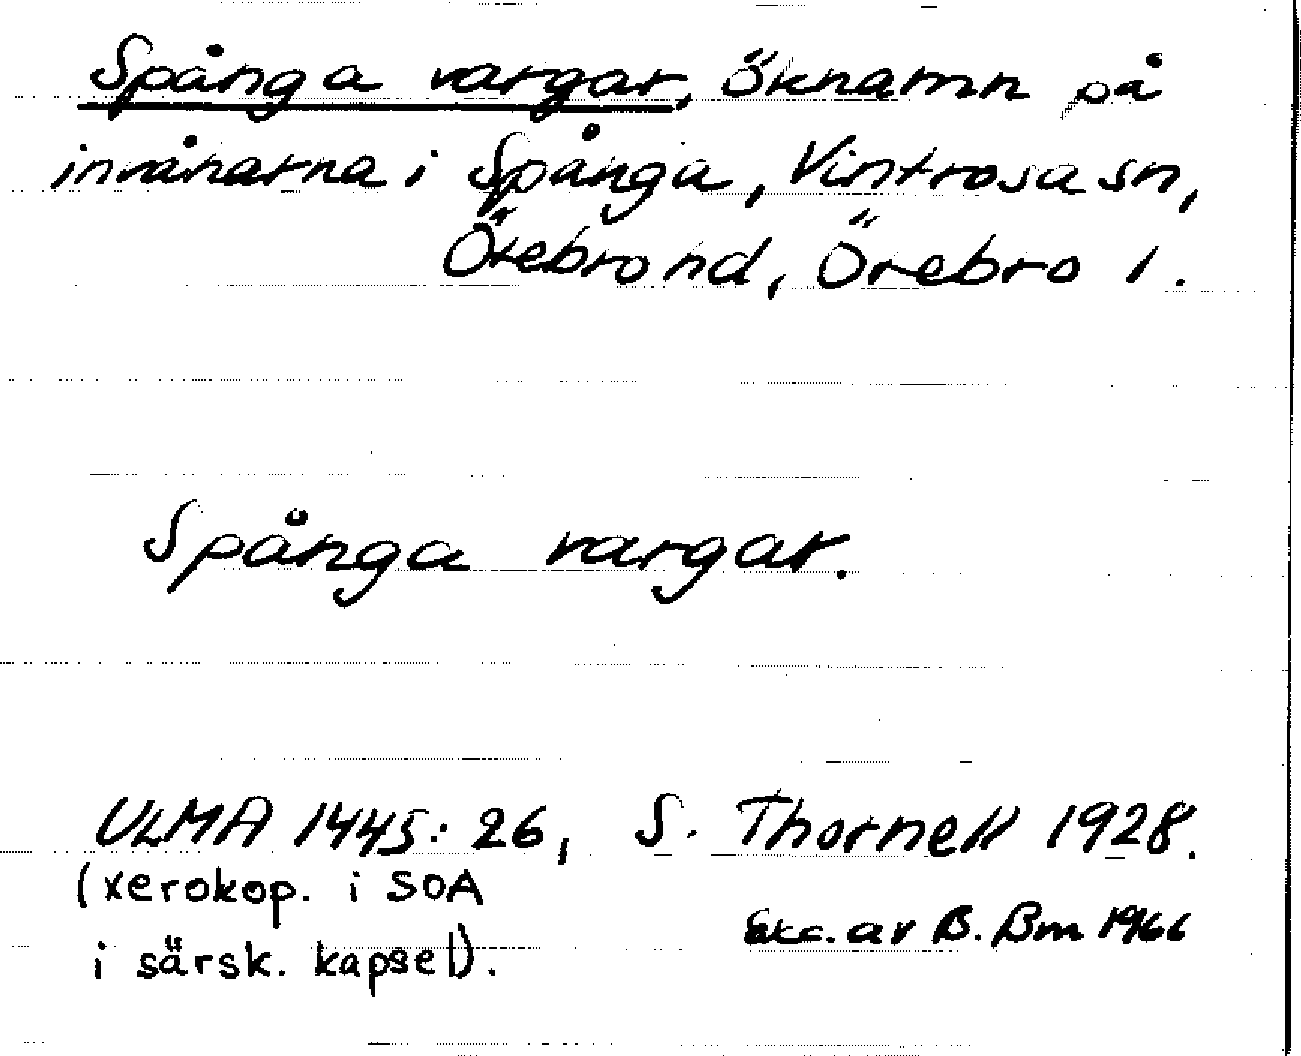 Spånga vargar, öknamn på
invånarna i Spånga, Vintrosa sn,
Örebro hd, Örebro l.
Spånga vargar.
ULMA 1445: 26, S. Thornell 1928.
(xerokop. i SOA
i särsk. kapsel).
Exc. av B. Bm 1966